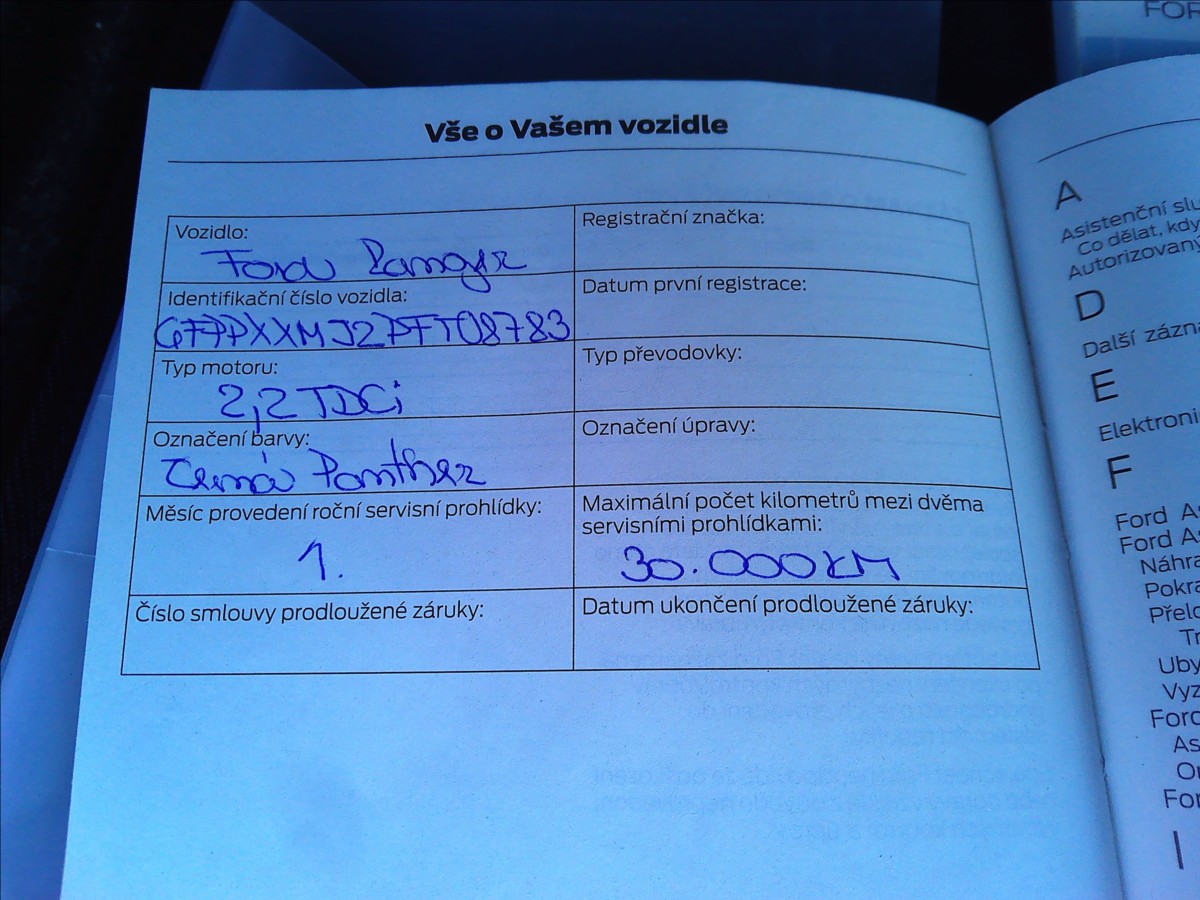 FOR
Vše o Vašem vozidle
Vozidlo:
Ford Ranger
Registrační značka:
Identifikační číslo vozidla:
6FPPXXMJ2PFT08783
Datum první registrace:
Typ motoru:
2,2 TDCi
Typ převodovky:
Označení barvy:
Černá Panther
Označení úpravy:
Měsíc provedení roční servisní prohlídky:
1.
Maximální počet kilometrů mezi dvěma
servisními prohlídkami:
30.000 KM
Číslo smlouvy prodloužené záruky:
Datum ukončení prodloužené záruky:
A
Asistenční slu
Co dělat, kdy
Autorizovaný
D
Další zázna
E
Elektroni
F
Ford As
Ford A
Náhra
Pokra
Přelo
Tr
Uby
Vyz
Ford
As
Or
For
I